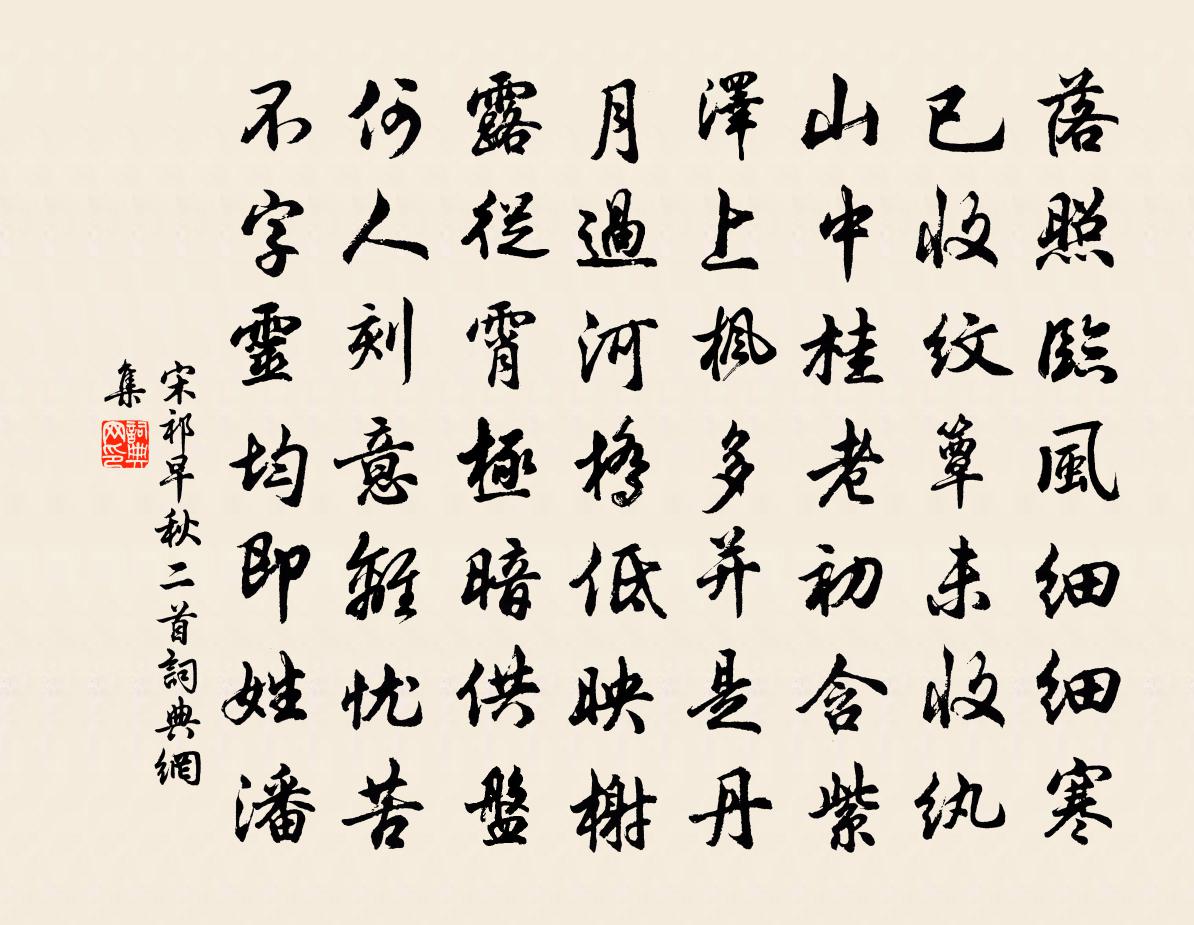 落照臨風細細寒
已收紋簟未收紈
山中桂老初含紫
澤上楓多并是丹
月過河橋低映榭
露從霄極暗供盤
何人刻意離忧苦
不字靈均即姓潘
宋祁早秋二首詞典網
集
詞典網印